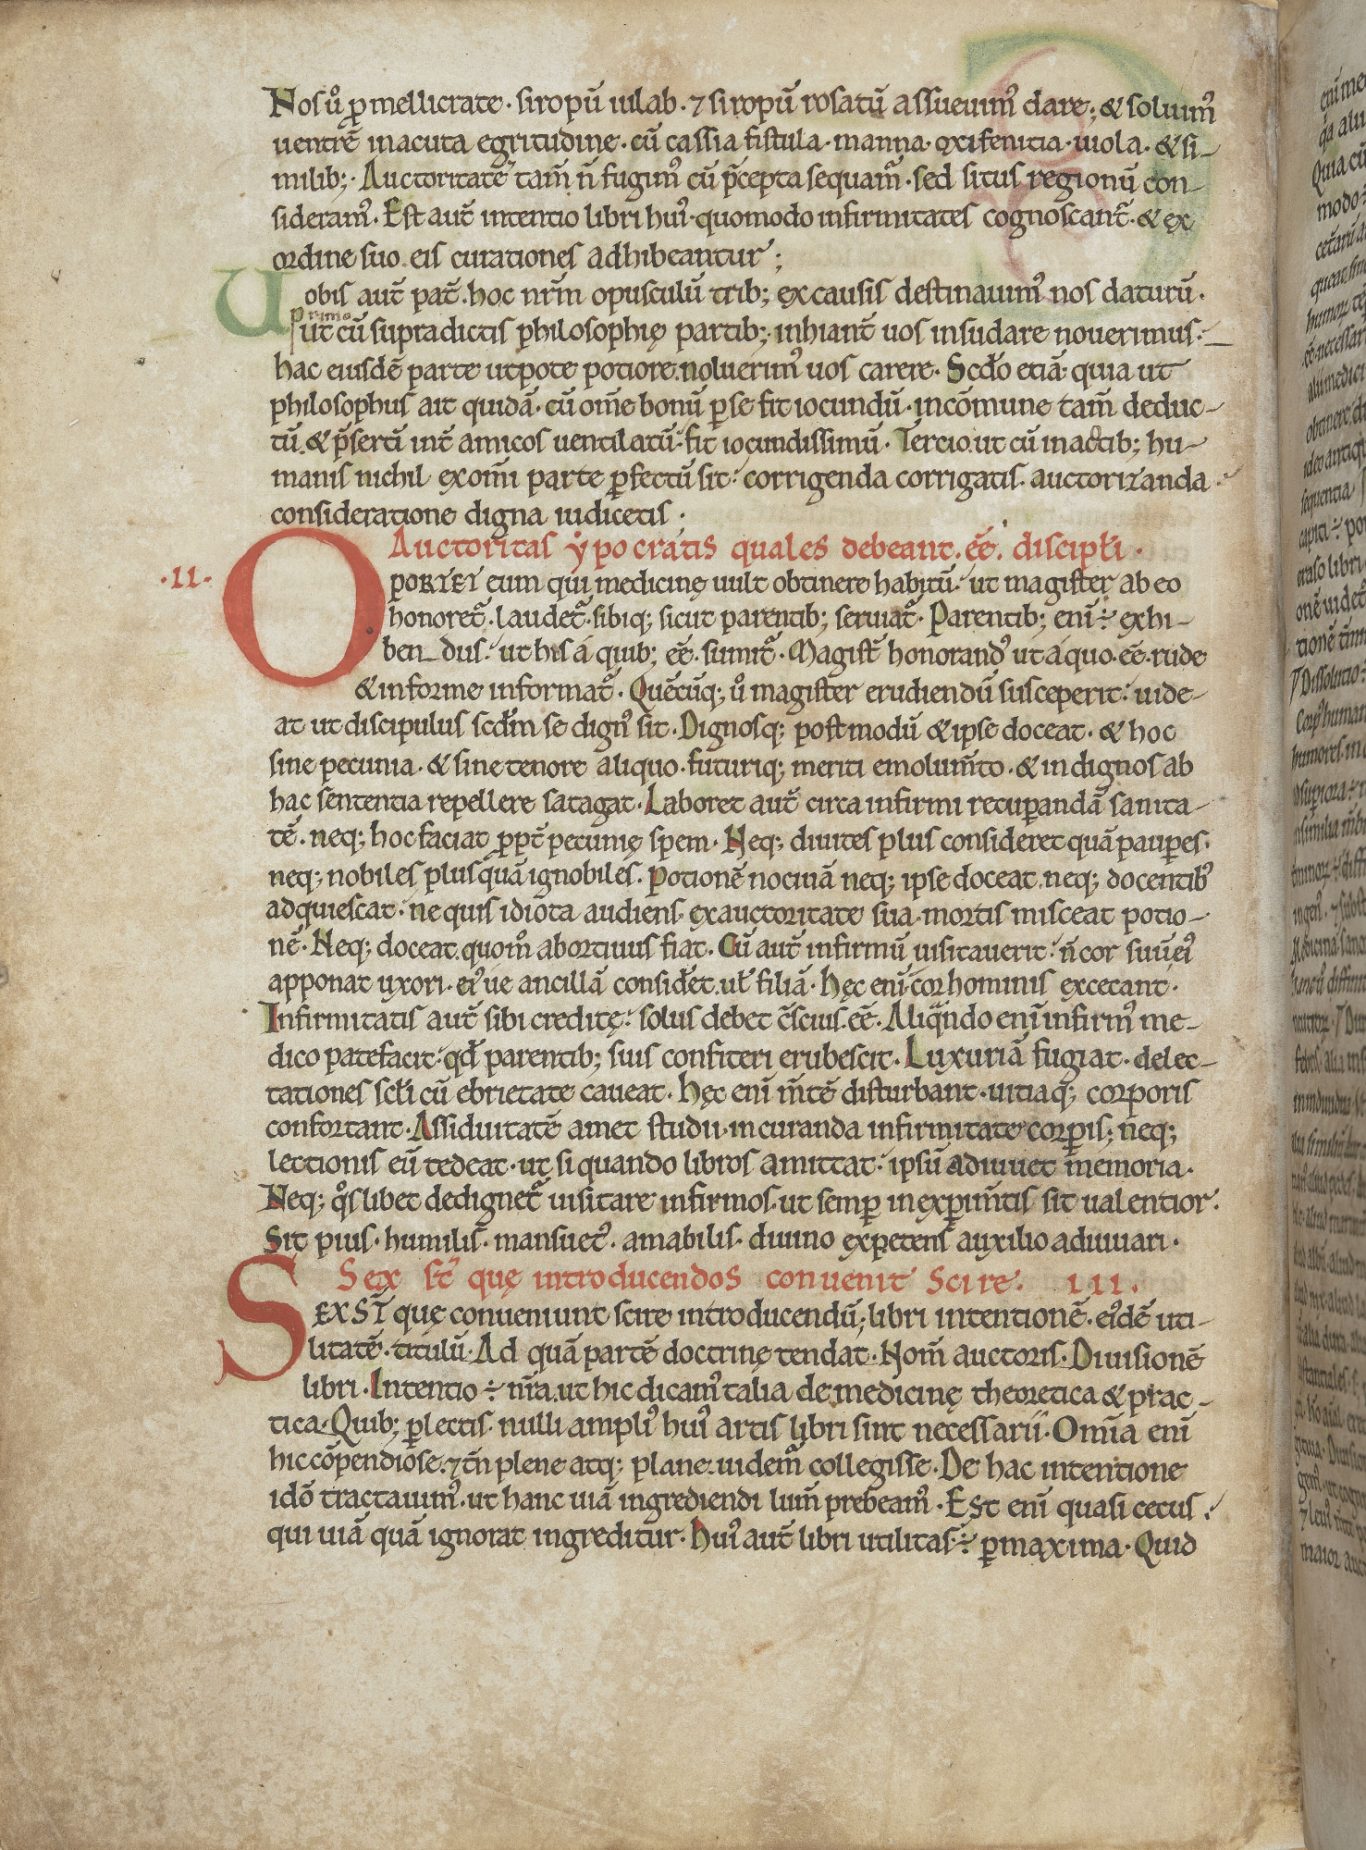 Nos ũ p mellicrate · siropũ iulab · ⁊ siropũ rosatũ assueuim᷒ dare; & soluim᷒
uentrẽ in acuta egritudine · cũ cassia fistula · manna · oxifenicia · uiola · & si-
milib; · Auctoritatẽ tam̃ ñ fugim᷒ cũ p̃cepta sequam̃ · sed situs regionũ con-
sideram᷒ · Est aut̃ intentio libri hui᷒ · quomodo infirmitates cognoscant̃ · & ex
ordine suo eis curationes adhibeantur;
Uobis aut̃ pat̃ · hoc nr̃m opusculũ trib; ex causis destinauim᷒ nos daturũ ·
primo ut cũ supradictis philosophię partib; inhiant̃ uos insudare nouerimus ·
hac eiusdẽ parte utpote potiore noluerim᷒ uos carere · Scd̃o etiã quia ut
philosophus ait quidã · cũ om̃e bonũ ꝑ se fit iocundũ · in cõmune tam̃ deduc-
tũ · & p̃sertĩ int̃ amicos uentilatũ · fit iocundissimũ · Tercio ut cũ in actib; hu-
manis nichil ex om̃i parte ꝑfectũ sit · corrigenda corrigatis · auctorizanda
consideratione digna iudicetis ·
Auctoritas ẏpocratis quales debeant · eẽ · discipl̃i ·
· II · OPORTET eum qui medicinę uult obtinere habitũ · ut magister ab eo
honoret̃ · laudet̃ · sibiq; sicut parentib; seruiat̃ · Parentib; enĩ ÷ exhi-
ben dus · ut his a quib; eẽ · sumit̃ · Magist̃ honorand᷒ ut a quo · eẽ · rude
& informe informat̃ · Quẽcũq; ũ magister erudiendũ susceperit · uide-
at ut discipulus scd̃m se dign᷒ sit · Dignosq; postmodũ & ipse doceat · & hoc
sine pecunia · & sine tenore aliquo · futuriq; meriti emolum̃to · & indignos ab
hac sententia repellere satagat · Laboret aut̃ circa infirmi recuꝑandã sanita-
tẽ · neq; hoc faciat ꝓpt̃ pecunię spem · Neq; diuites plus consideret quã pauꝑes ·
neq; nobiles plus quã ignobiles · Potionẽ nociuã neq; ipse doceat neq; docentib᷒
adquiescat · ne quis idiota audiens ex auctoritate sua · mortis misceat potio-
nẽ · Neq; doceat quom̃ abortiuus fiat · Cũ aut̃ infirmũ uisitauerit · ñ cor suũ ei᷒
apponat uxori · ei᷒ ue ancillã consid̃et ul̃ filiã · Hęc enĩ cor hominis excecant ·
Infirmitatis aut̃ sibi creditę · solus debet c̃scius · eẽ · Aliqñdo enĩ infirm᷒ me-
dico patefacit · qd̃ parentib; suis confiteri erubescit · Luxuriã fugiat · delec-
tationes scl̃i cũ ebrietate caueat · Hęc enĩ m̃tẽ disturbant · uitiaq; corporis
confortant · Assiduitatẽ amet studii · in curanda infirmitate corꝑis; neq;
lectionis eũ tedeat · ut si quando libros amittat · ipsũ adiuuet memoria ·
Neq; q̊s libet dedignet̃ uisitare infirmos · ut semꝑ in exꝑim̃tis sit ualentior ·
Sit pius · humilis · mansuet᷒ · amabilis · diuino expetens auxilio adiuuari ·
Sex st̃ quę introducendos conuenit scire · III ·
SEX ST̃ quę conueniunt scire introducendũ; libri intentionẽ · ei᷒dẽ uti-
litatẽ · titulũ · Ad quã partẽ doctrinę tendat · Nom̃ auctoris · Diuisionẽ
libri · Intentio ÷ nr̃a ut hic dicam᷒ talia de medicinę theoretica & prac-
tica · Quib; ꝑlectis · nulli ampli᷒ hui᷒ artis libri sint necessarii · Omĩa enĩ
hic cõpendiose · ⁊ tñ plene atq; plane uidem̃ collegisse · De hac intentione
idõ tractauim᷒ · ut hanc uiã ingrediendi lum̃ prebeam᷒ · Est enĩ quasi cecus ·
qui uiã quã ignorat ingreditur · Hui᷒ aut̃ libri utilitas ÷ ꝑmaxima · Quid